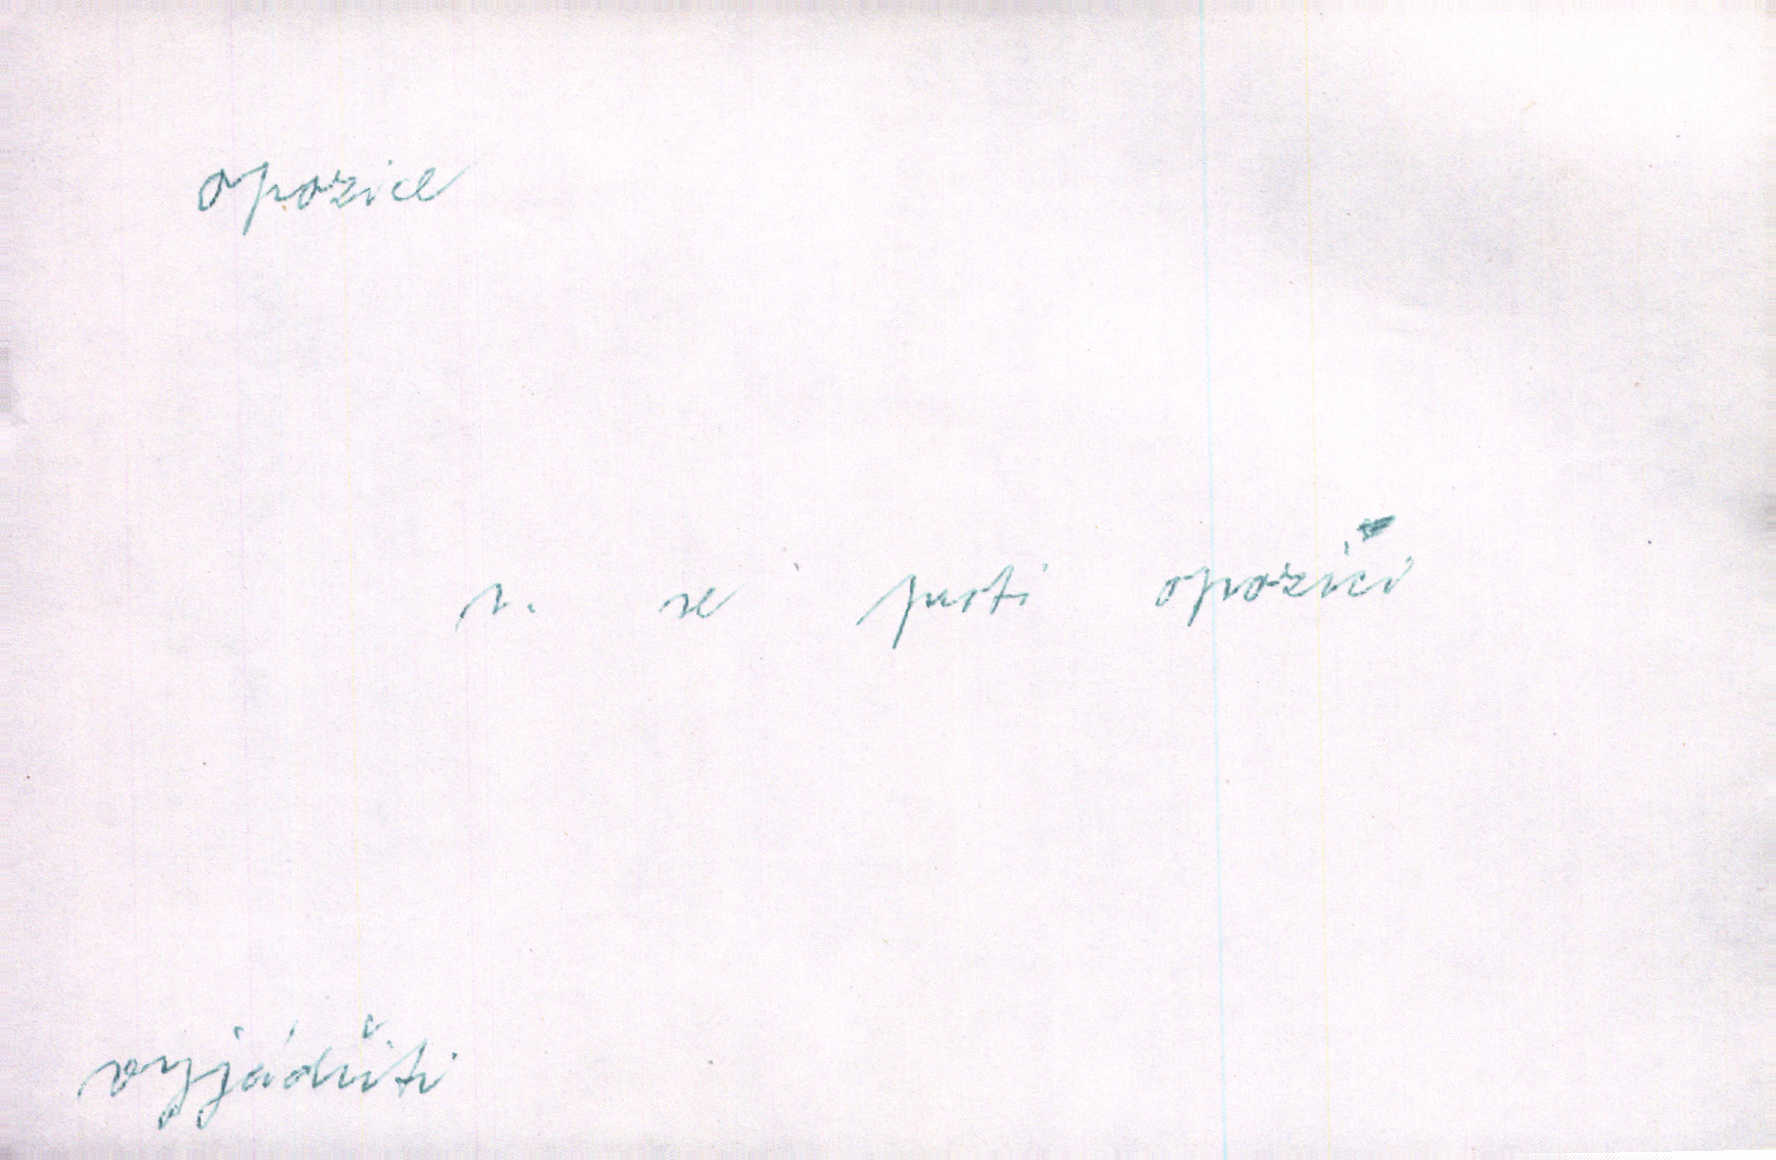 opozice
v. se proti opozici
vyjádřiti